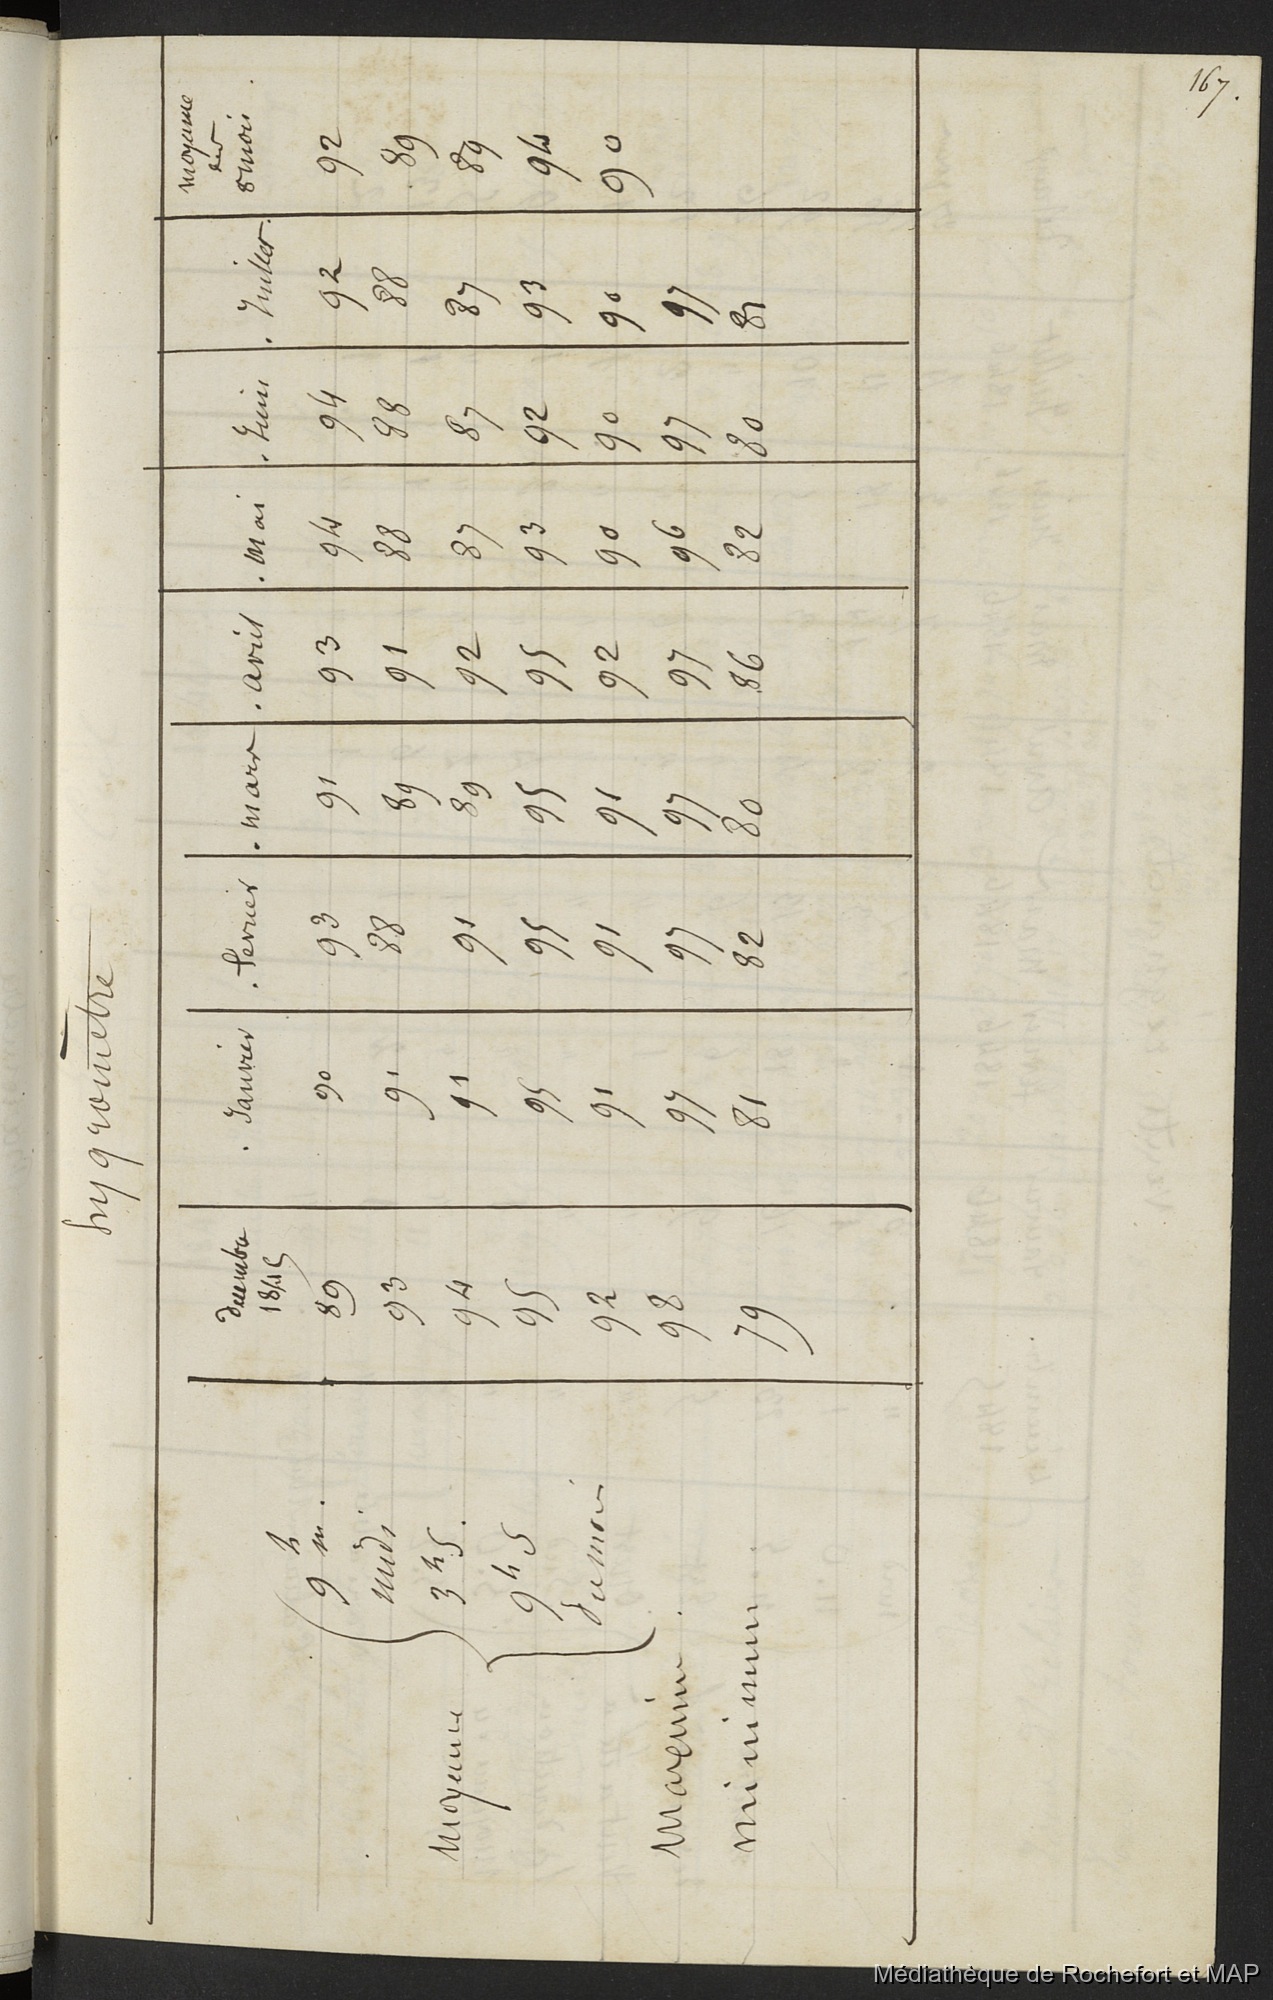 167.
hygromètre
décembre 1845 . Janvier . fevrier . mars . avril . mai . Juin . Juillet . moyenne des 8 mois .
moyenne
9 h m. 89 90 93 91 93 94 94 92 92
midi 93 91 88 89 91 88 88 88 89
3 h S. 94 91 91 89 92 87 87 87 89
9 h S 95 95 95 95 95 93 92 93 94
du mois 92 91 91 91 92 90 90 90 90
Maximum . 98 97 97 97 97 96 97 97
minimum 79 81 82 80 86 82 80 81
Médiathèque de Rochefort et MAP